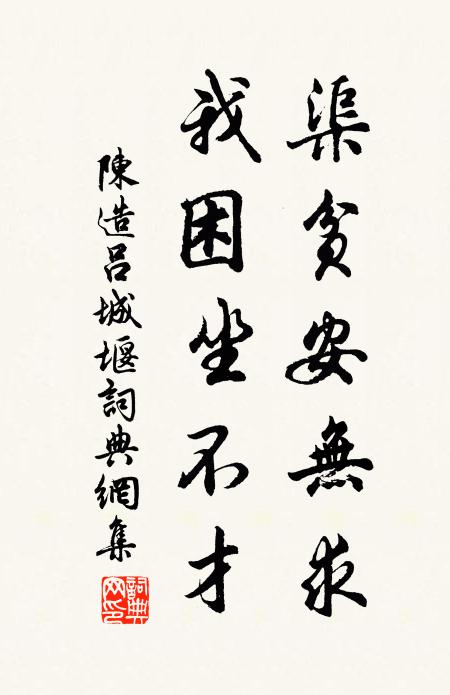 渠貧安無求
我困坐不才
陳造吕城堰詞典網集
詞典网印